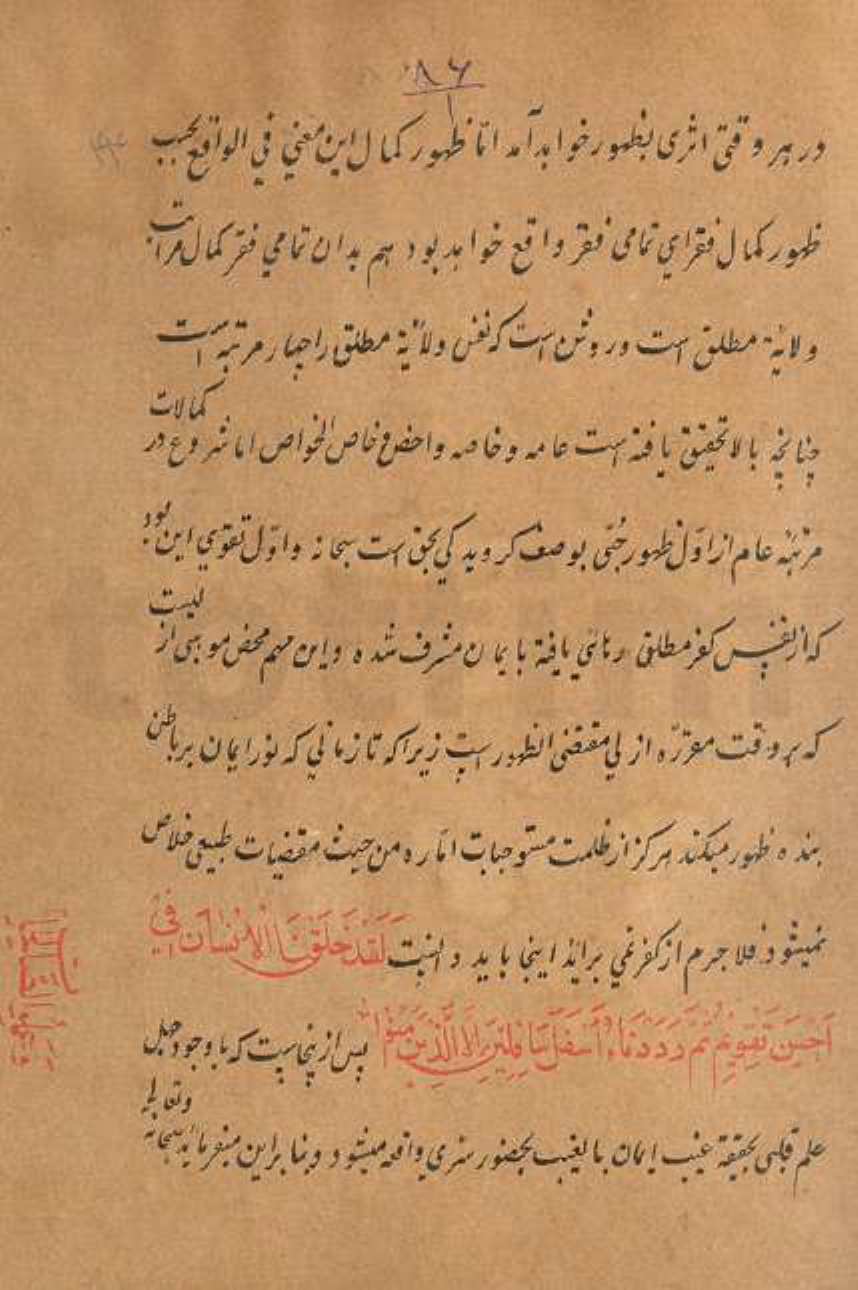 ۸۶
در هر وقتی اثری بظهور خواهد آمد امّا ظهور کمال این معنی في الواقع بحسب
ظهور کمال فقرای تمامی فقر واقع خواهد بود هم بدان تمامي فقر کمال مراتب
ولایة مطلق است و روشن است که نفس ولایة مطلق را چهار مرتبه است
چنانچه بالا تحقیق یافته است عامه و خاصه و اخص و خاص الخواص اما شروع در کمالات
مرتبهٔ عام از اول ظهور حُبّی بوصف گرویدگی بحق است سبحانه و اوّل تقوی این بود
که از نفس کفر مطلق رهائی یافته بایمان مشرف شده و این مهم محض موهبی از لیست
که بر وقت مقرّره ازلی مقتضی الظهور است زیرا که تا زمانی که نور ایمان بر باطن
بنده ظهور میکند هرگز از ظلمت مستوجبات امّاره من حیث مقتضیات طبیعی خلاص
نمیشود فلا جرم از کفر نمی براید اینجا باید دانست لَقَدْ خَلَقْنَا الْاِنْسَانَ فِي
اَحْسَنِ تَقْوِيْمٍ ثُمَّ رَدَدْنَاهُ اَسْفَلَ سَافِلِيْنَ اِلَّا الَّذِيْنَ اٰمَنُوْا پس از ینجاست که با وجود جهل
علم قلبی بحقیقة غیب ایمان بالغیب بحضور سری واقع میشود و بنا براین میفرماید سبحانه وتعالی